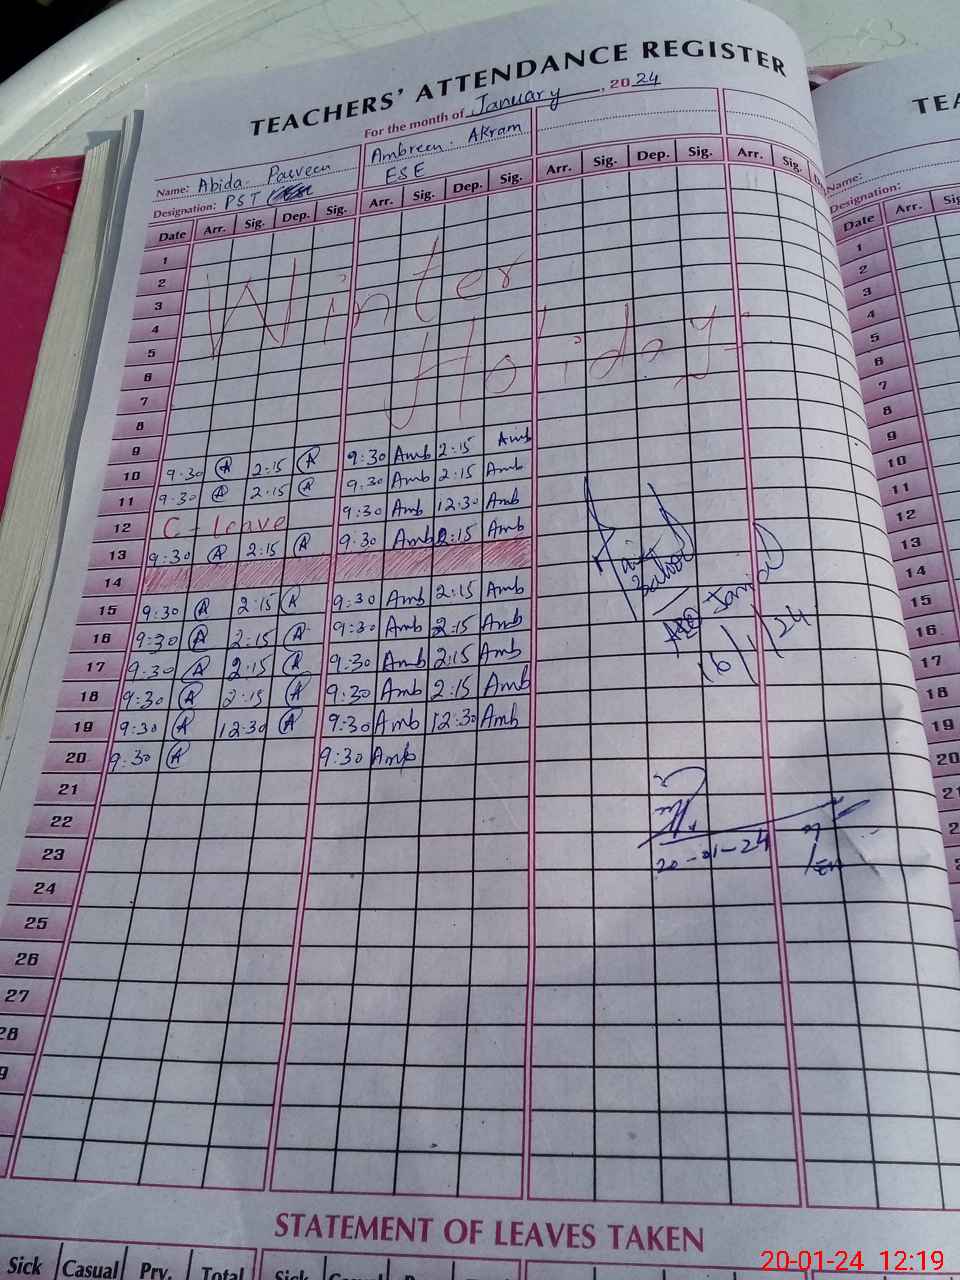 TEACHERS' ATTENDANCE REGISTER
For the month of January, 2024
Name: Abida Parveen Ambreen Akram
Designation: PST ESE
Date Arr. Sig. Dep. Sig. Arr. Sig. Dep. Sig. Arr. Sig. Dep. Sig. Arr. Sig.
1
2 Winter
3
4
5 Holidays
6
7
8
9
10 9:30 A 2:15 A 9:30 Amb 2:15 Amb
11 9:30 A 2:15 A 9:30 Amb 2:15 Amb
12 C-Leave 9:30 Amb 12:30 Amb
13 9:30 A 2:15 A 9:30 Amb 2:15 Amb
14
15 9:30 A 2:15 A 9:30 Amb 2:15 Amb
16 9:30 A 2:15 A 9:30 Amb 2:15 Amb
17 9:30 A 2:15 A 9:30 Amb 2:15 Amb
18 9:30 A 2:15 A 9:30 Amb 2:15 Amb
19 9:30 A 12:30 A 9:30 Amb 12:30 Amb
20 9:30 A 9:30 Amb
21
22
23
24
25
26
27
28
9
Javid
16/1/24
20-01-24
STATEMENT OF LEAVES TAKEN
Sick Casual Prv. Total Sick
TEA
Name:
Designation:
Date Arr.
1
2
3
4
5
6
7
8
9
10
11
12
13
14
15
16
17
18
19
20
21
20-01-24 12:19